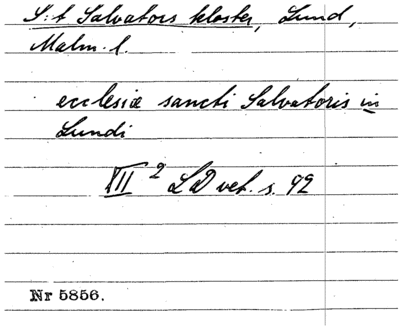 S:t Salvators kloster, Lund,
Malm. l.
ecclesiæ sancti Salvatoris in
Lundi
VII 2 LD vet. s. 92
Nr 5856.